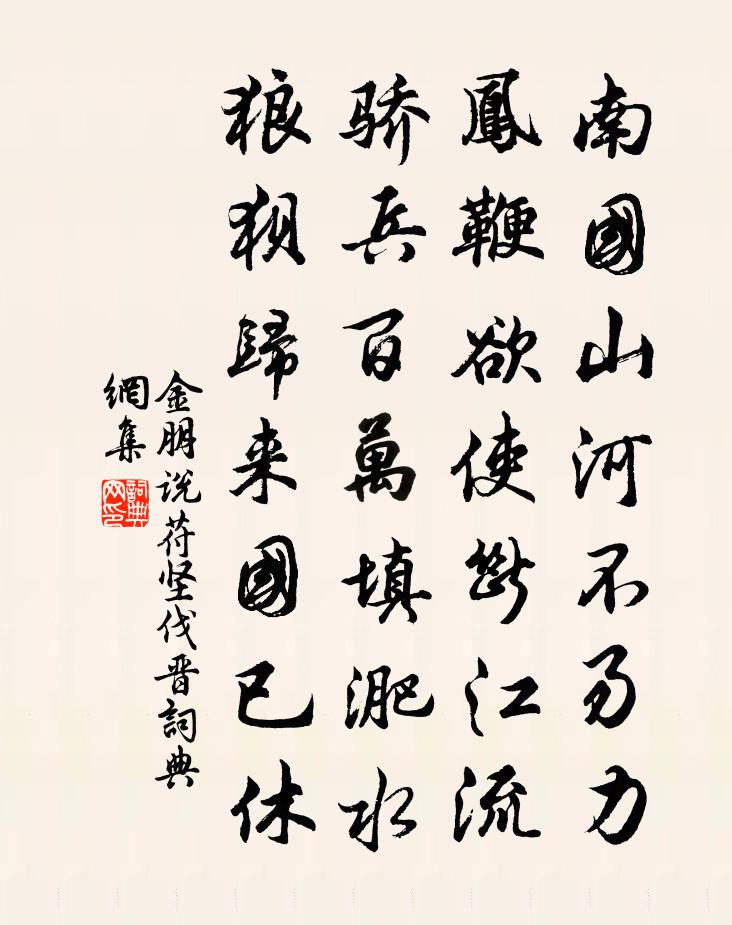 南國山河不易力
鳳鞭欲使斷江流
骄兵百萬填淝水
狼狽歸来國已休
金朋说苻坚伐晋詞典
網集
詞典
网印